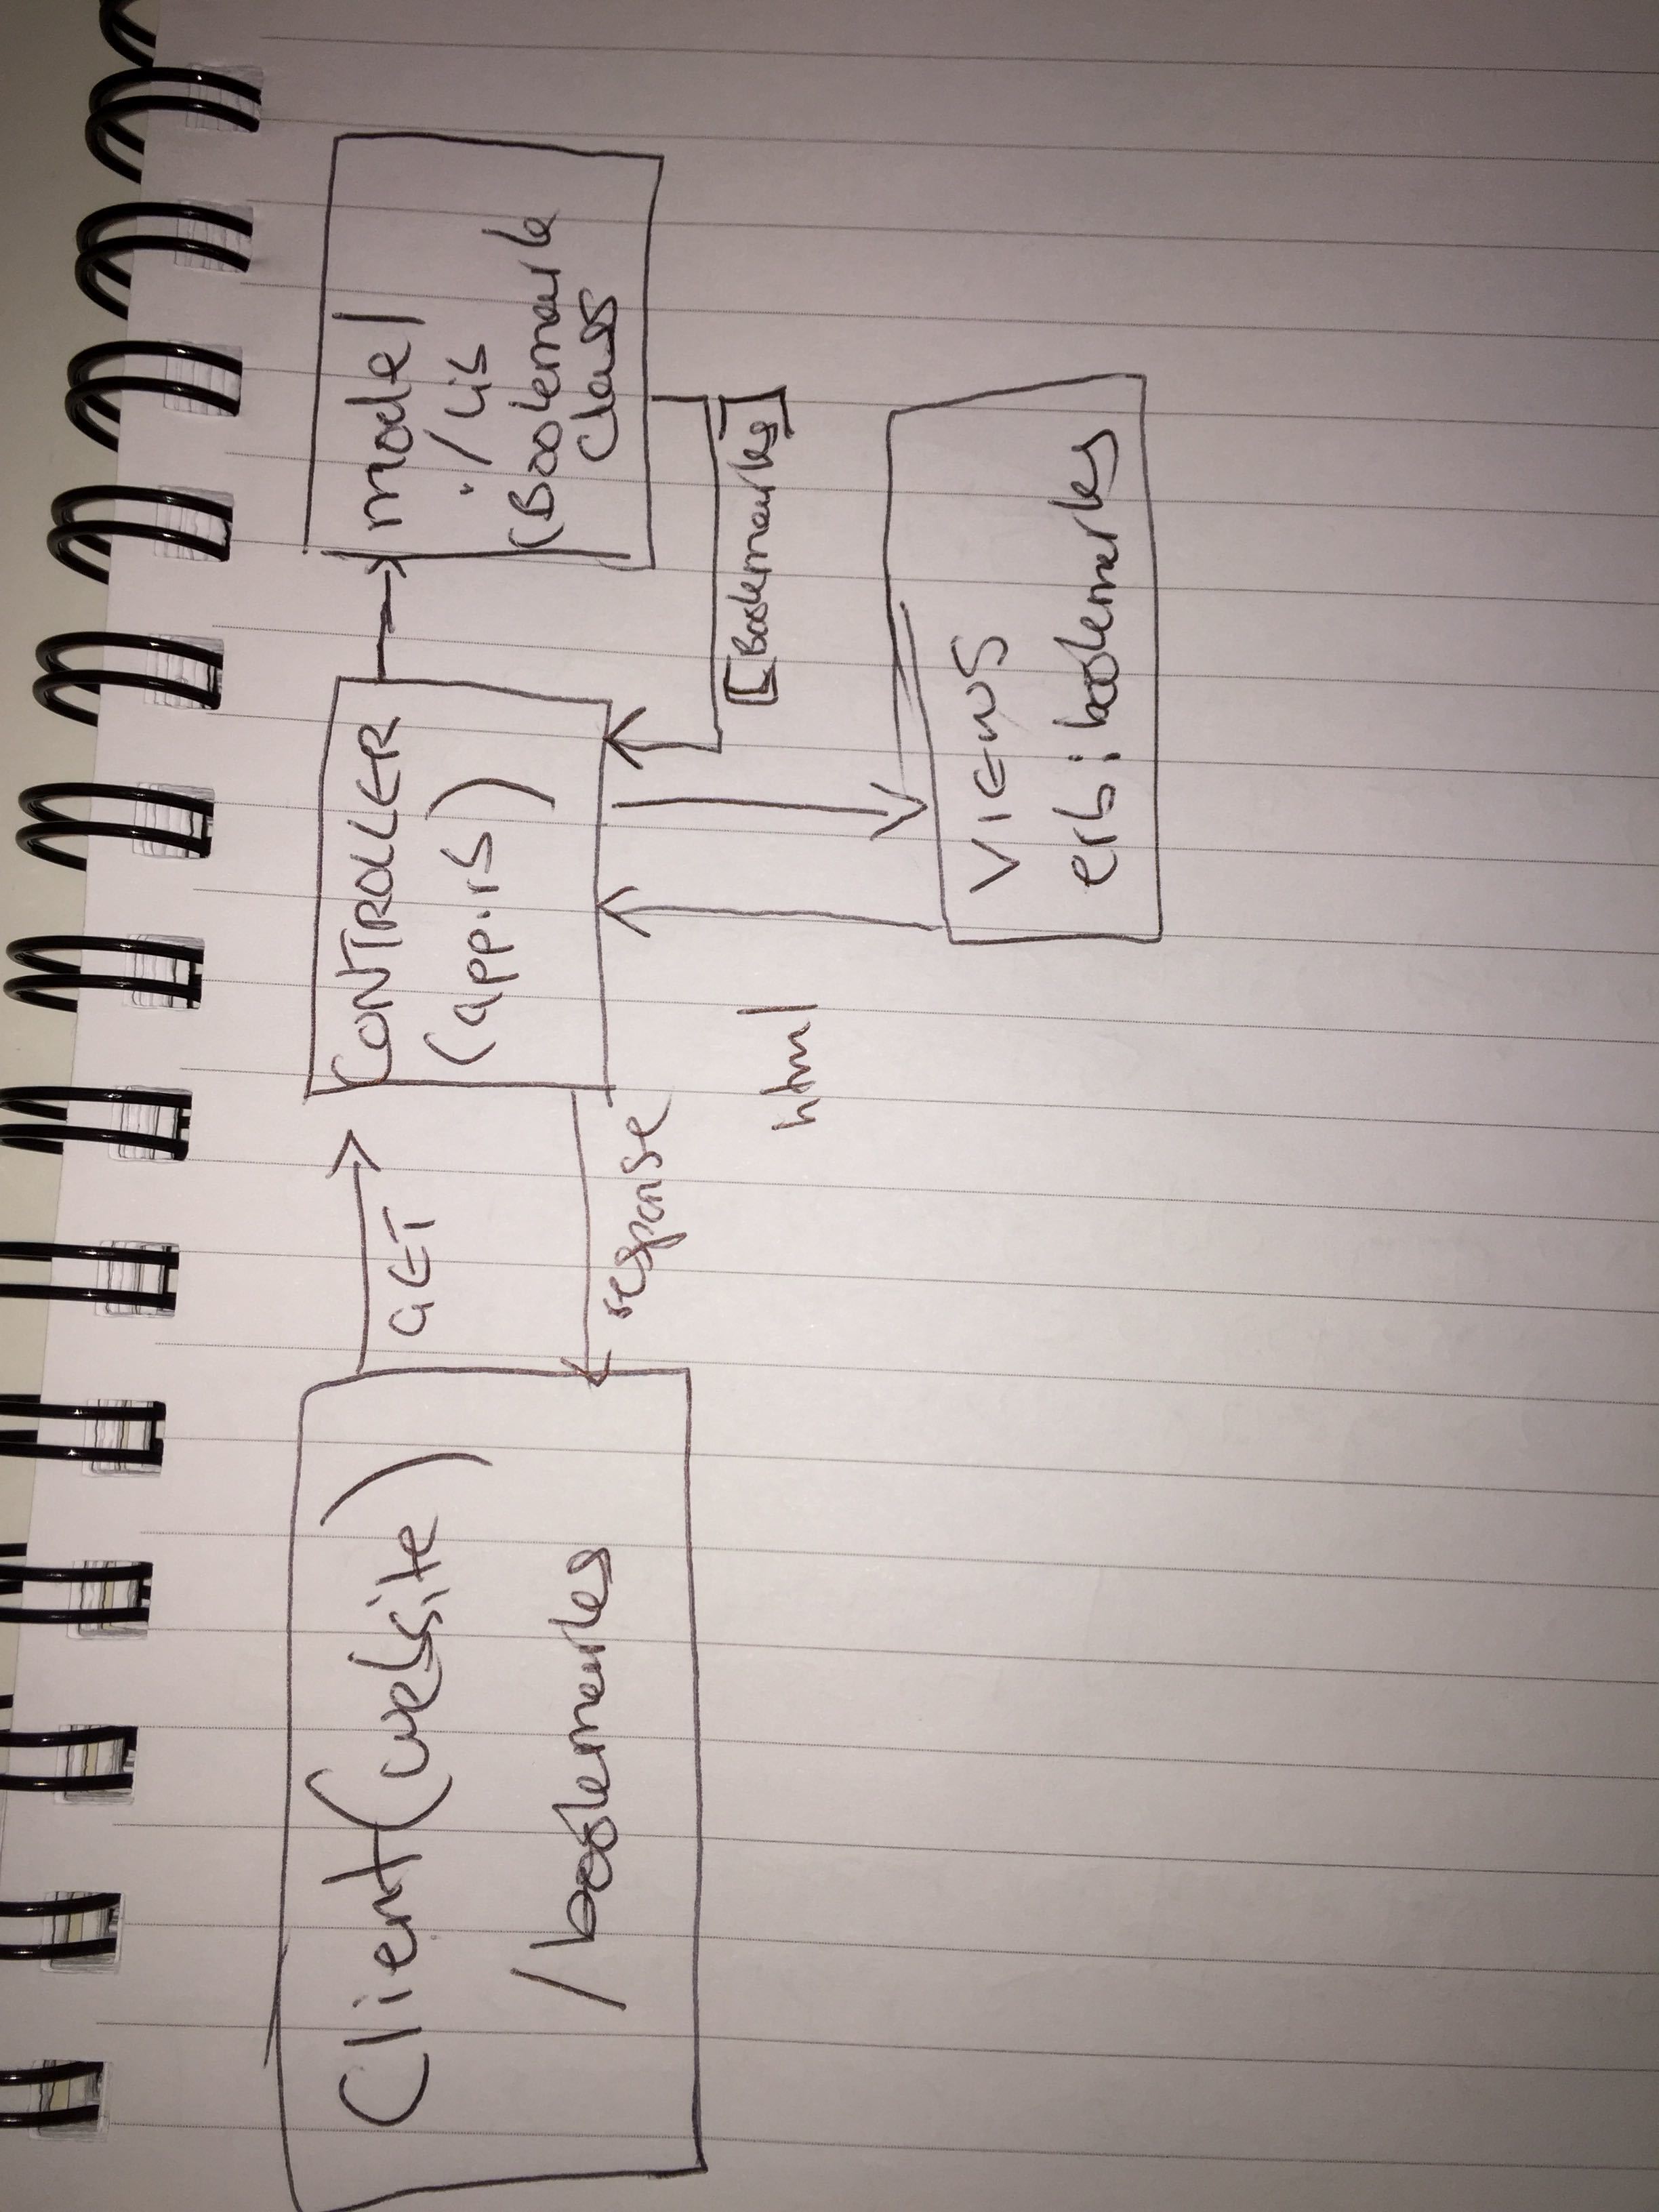 Client (website)
/bookmarks
GET
response
CONTROLLER
(app.rb)
model
./lib
(Bookmark
class
[Bookmarks]
html
VIEWS
erb:bookmarks